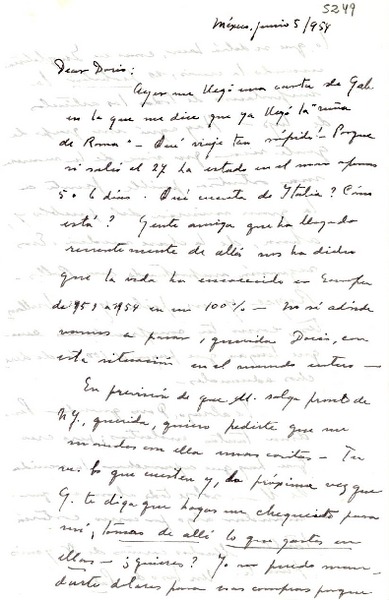 5249
México, junio 5/954
Dear Doris:
Ayer me llegó una carta de Gab.
en la que me dice que ya llegó la "niña
de Roma" — Qué viaje tan rápido! Porque
si salió el 27 ha estado en el mar apenas
5 o 6 días. Qué cuenta de Italia? Cómo
está? Gente amiga que ha llegado
recientemente de allí nos ha dicho
que la vida ha encarecido en Europa
de 953 a 1954 en un 100% — No sé adónde
vamos a parar, querida Doris, con
esta situación en el mundo entero —
En previsión de que M. salga pront de
NY., querida, quiero pedirte que me
mandes con ella unas cositas — Tu
ve. lo que cuestan y, la próxima vez que
G. te diga que hagas un chequecito para
mí, tomas de allí lo que gastes en
ellas — ¿quieres? Yo no puedo man-
darte dolares para esas compras porque